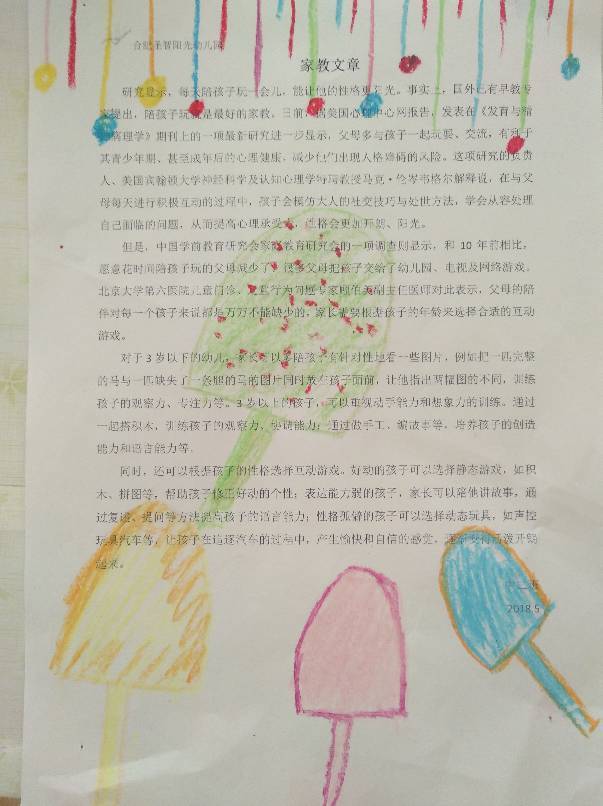 合肥圣智阳光幼儿园
家教文章
研究显示，每天陪孩子玩一会儿，能让他的性格更阳光。事实上，国外已有早教专
家提出，陪孩子玩就是最好的家教。日前，据美国心理中心网报告，发表在《发育与精
神病理学》期刊上的一项最新研究进一步显示，父母多与孩子一起玩耍、交流，有利于
其青少年期、甚至成年后的心理健康，减少他们出现人格障碍的风险。这项研究的负责
人、美国宾翰顿大学神经科学及认知心理学特聘教授马克·伦岑韦格尔解释说，在与父
母每天进行积极互动的过程中，孩子会模仿大人的社交技巧与处世方法，学会从容处理
自己面临的问题，从而提高心理承受力，性格会更加开朗、阳光。
但是，中国学前教育研究会家庭教育研究会的一项调查则显示，和 10 年前相比，
愿意花时间陪孩子玩的父母减少了，很多父母把孩子交给了幼儿园、电视及网络游戏。
北京大学第六医院儿童门诊、儿童行为问题专家顾伯美副主任医师对此表示，父母的陪
伴对每一个孩子来说都是万万不能缺少的，家长需要根据孩子的年龄来选择合适的互动
游戏。
对于 3 岁以下的幼儿，家长可以多陪孩子有针对性地看一些图片，例如把一匹完整
的马与一匹缺失了一条腿的马的图片同时放在孩子面前，让他指出两幅图的不同，训练
孩子的观察力、专注力等。3 岁以上的孩子，可以重视动手能力和想象力的训练。通过
一起搭积木，训练孩子的观察力、协调能力；通过做手工、编故事等，培养孩子的创造
能力和语言能力等。
同时，还可以根据孩子的性格选择互动游戏。好动的孩子可以选择静态游戏，如积
木、拼图等，帮助孩子修正好动的个性；表达能力弱的孩子，家长可以陪他讲故事，通
过复述、提问等方法提高孩子的语言能力；性格孤僻的孩子可以选择动态玩具，如声控
玩具汽车等，让孩子在追逐汽车的过程中，产生愉快和自信的感觉，逐渐变得活泼开朗
起来。
中二班
2018.5